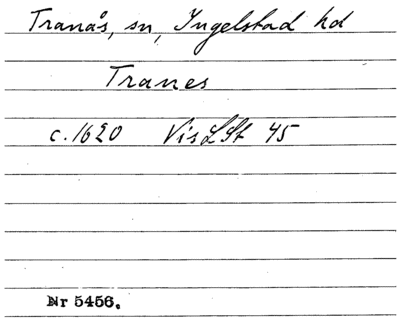 Tranås, sn, Ingelstad hd
Tranes
c. 1620 VisLSt 45
Nr 5456.